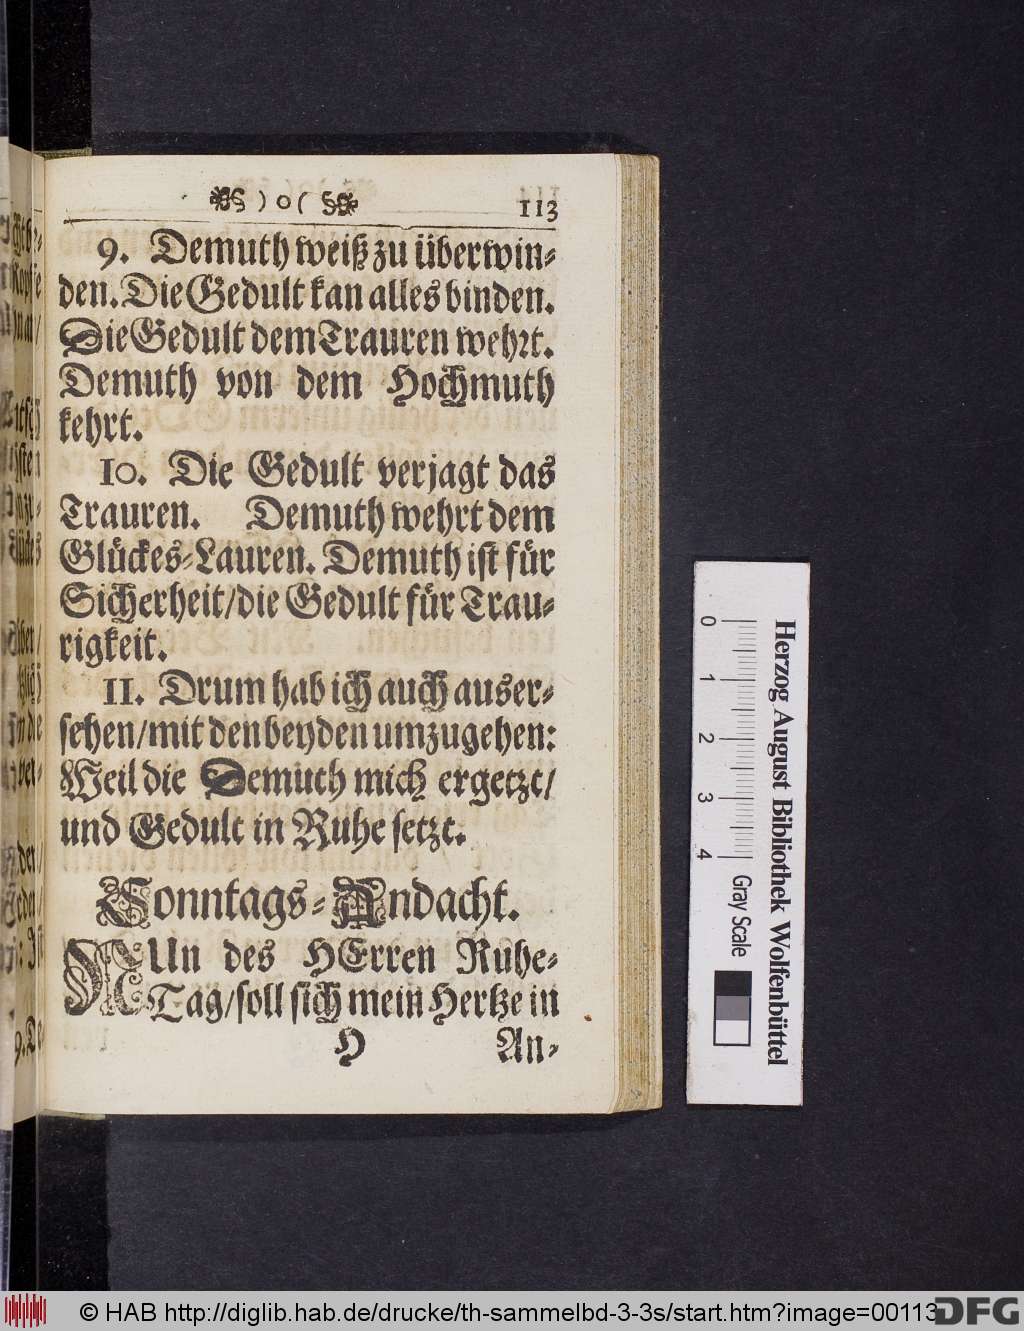 ) o ( 113
9. Demuth weiß zu überwin-
den. Die Gedult kan alles binden.
Die Gedult dem Trauren wehrt.
Demuth von dem Hochmuth
kehrt.
10. Die Gedult verjagt das
Trauren. Demuth wehrt dem
Glückes-Lauren. Demuth ist für
Sicherheit/die Gedult für Trau-
rigkeit.
11. Drum hab ich auch auser-
sehen/mit den beyden umzugehen:
Weil die Demuth mich ergetzt/
und Gedult in Ruhe setzt.
Sonntags-Andacht.
NUn des HErren Ruhe-
Tag/soll sich mein Hertze in
H An-
Herzog August Bibliothek Wolfenbüttel
0 1 2 3 4 Gray Scale
© HAB http://diglib.hab.de/drucke/th-sammelbd-3-3s/start.htm?image=00113
DFG